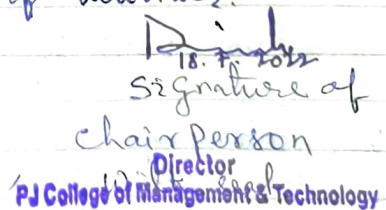 of
18.7.2022
Signature of
chairperson
Director
PJ College of Management & Technology